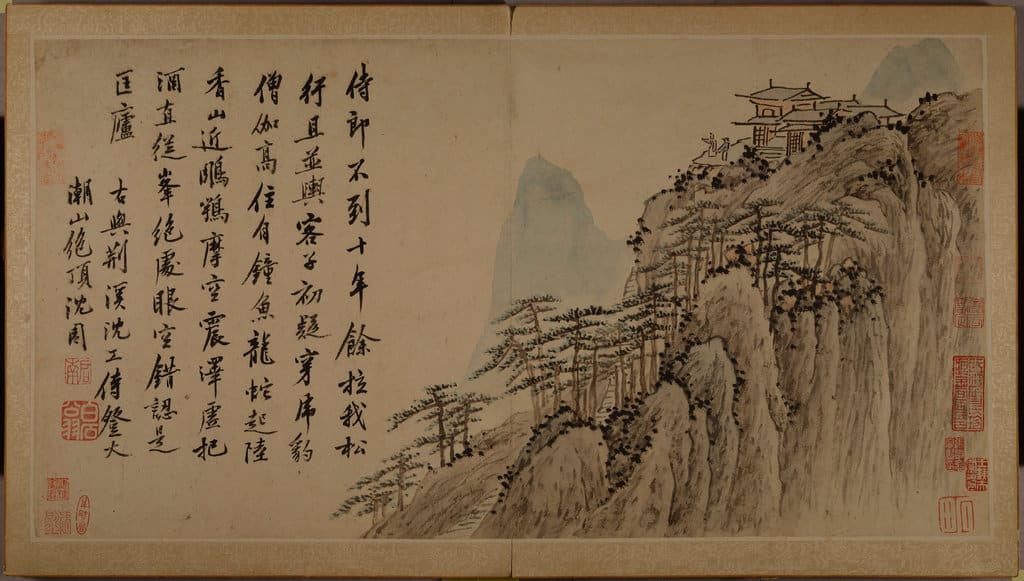 侍郎不到十年餘拉我松
行且並輿客子初疑穿虎豹
僧伽高住有鐘魚龍蛇起陸
香山近鵰鶚摩空震澤虛把
酒直從峯絕處眼空錯認是
匡廬
右與荊溪沈工侍登大
潮山絕頂沈周
啓南
白石翁